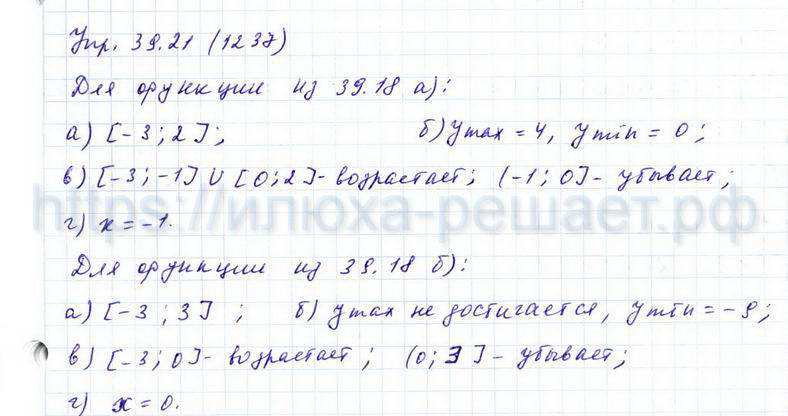 Упр. 39.21 (1237)
Для функции из 39.18 а):
а) [-3; 2]; б) ymax = 4, ymin = 0;
в) [-3; -1] U [0; 2] - возрастает; (-1; 0] - убывает;
https://илюха-решает.рф
г) x = -1.
Для функции из 39.18 б):
а) [-3; 3]; б) ymax не достигается, ymin = -9;
в) [-3; 0] - возрастает; (0; 3] - убывает;
г) x = 0.